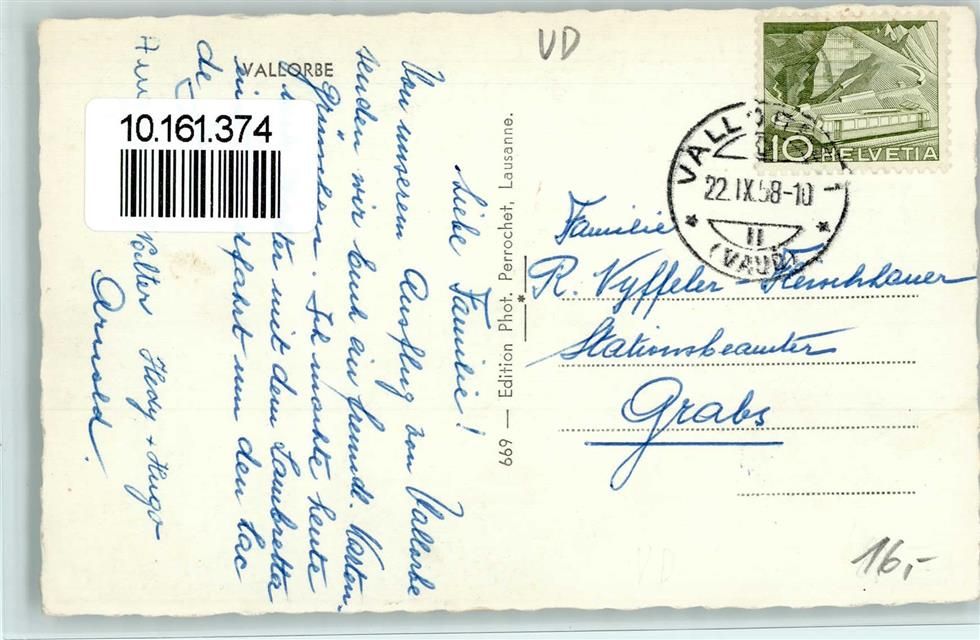 VALLORBE
10.161.374
Liebe Familie!
Von unserem Ausflug von Vallorbe
senden wir Euch ein freundl. Karten-
Grüsschen. Ich machte heute
mit dem Lambretta
fahrt um den Lac
de
Walter Hedy + Hugo
Arnold.
669 — Edition Phot. Perrochet, Lausanne.
VD
10 HELVETIA
VALLORBE 1
22.IX.58-10
II
(VAUD)
Familie
R. Nyffeler-Herschhauer
Stationsbeamter
Grabs
16,-
VD